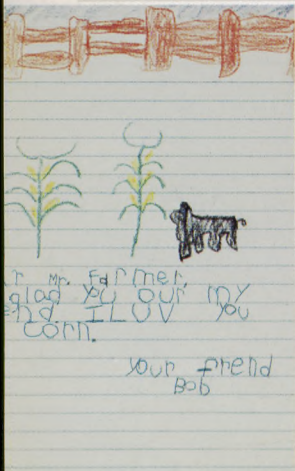 r Mr. Farmer,
glad you our my
end. I LUV you
corn.
your frend
Bob